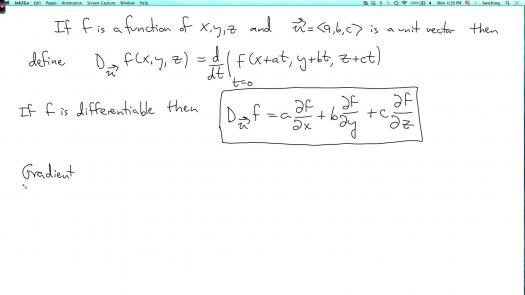 Ink2Go Edit Pages Annotation Screen Capture Window Help
If f is a function of x,y,z and u⃗ = <a,b,c> is a unit vector then
define D_u⃗ f(x,y,z) = d/dt |_{t=0} f(x+at, y+bt, z+ct)
If f is differentiable then D_u⃗ f = a ∂f/∂x + b ∂f/∂y + c ∂f/∂z
Gradient